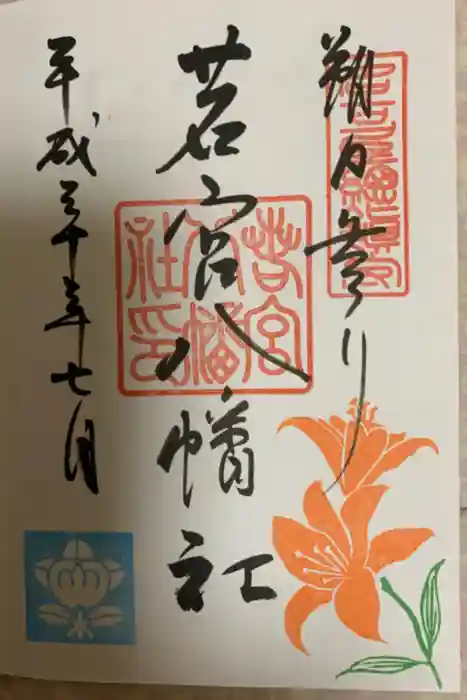 朔日参り
若宮八幡社
平成三十年七月
若宮
八幡
社印